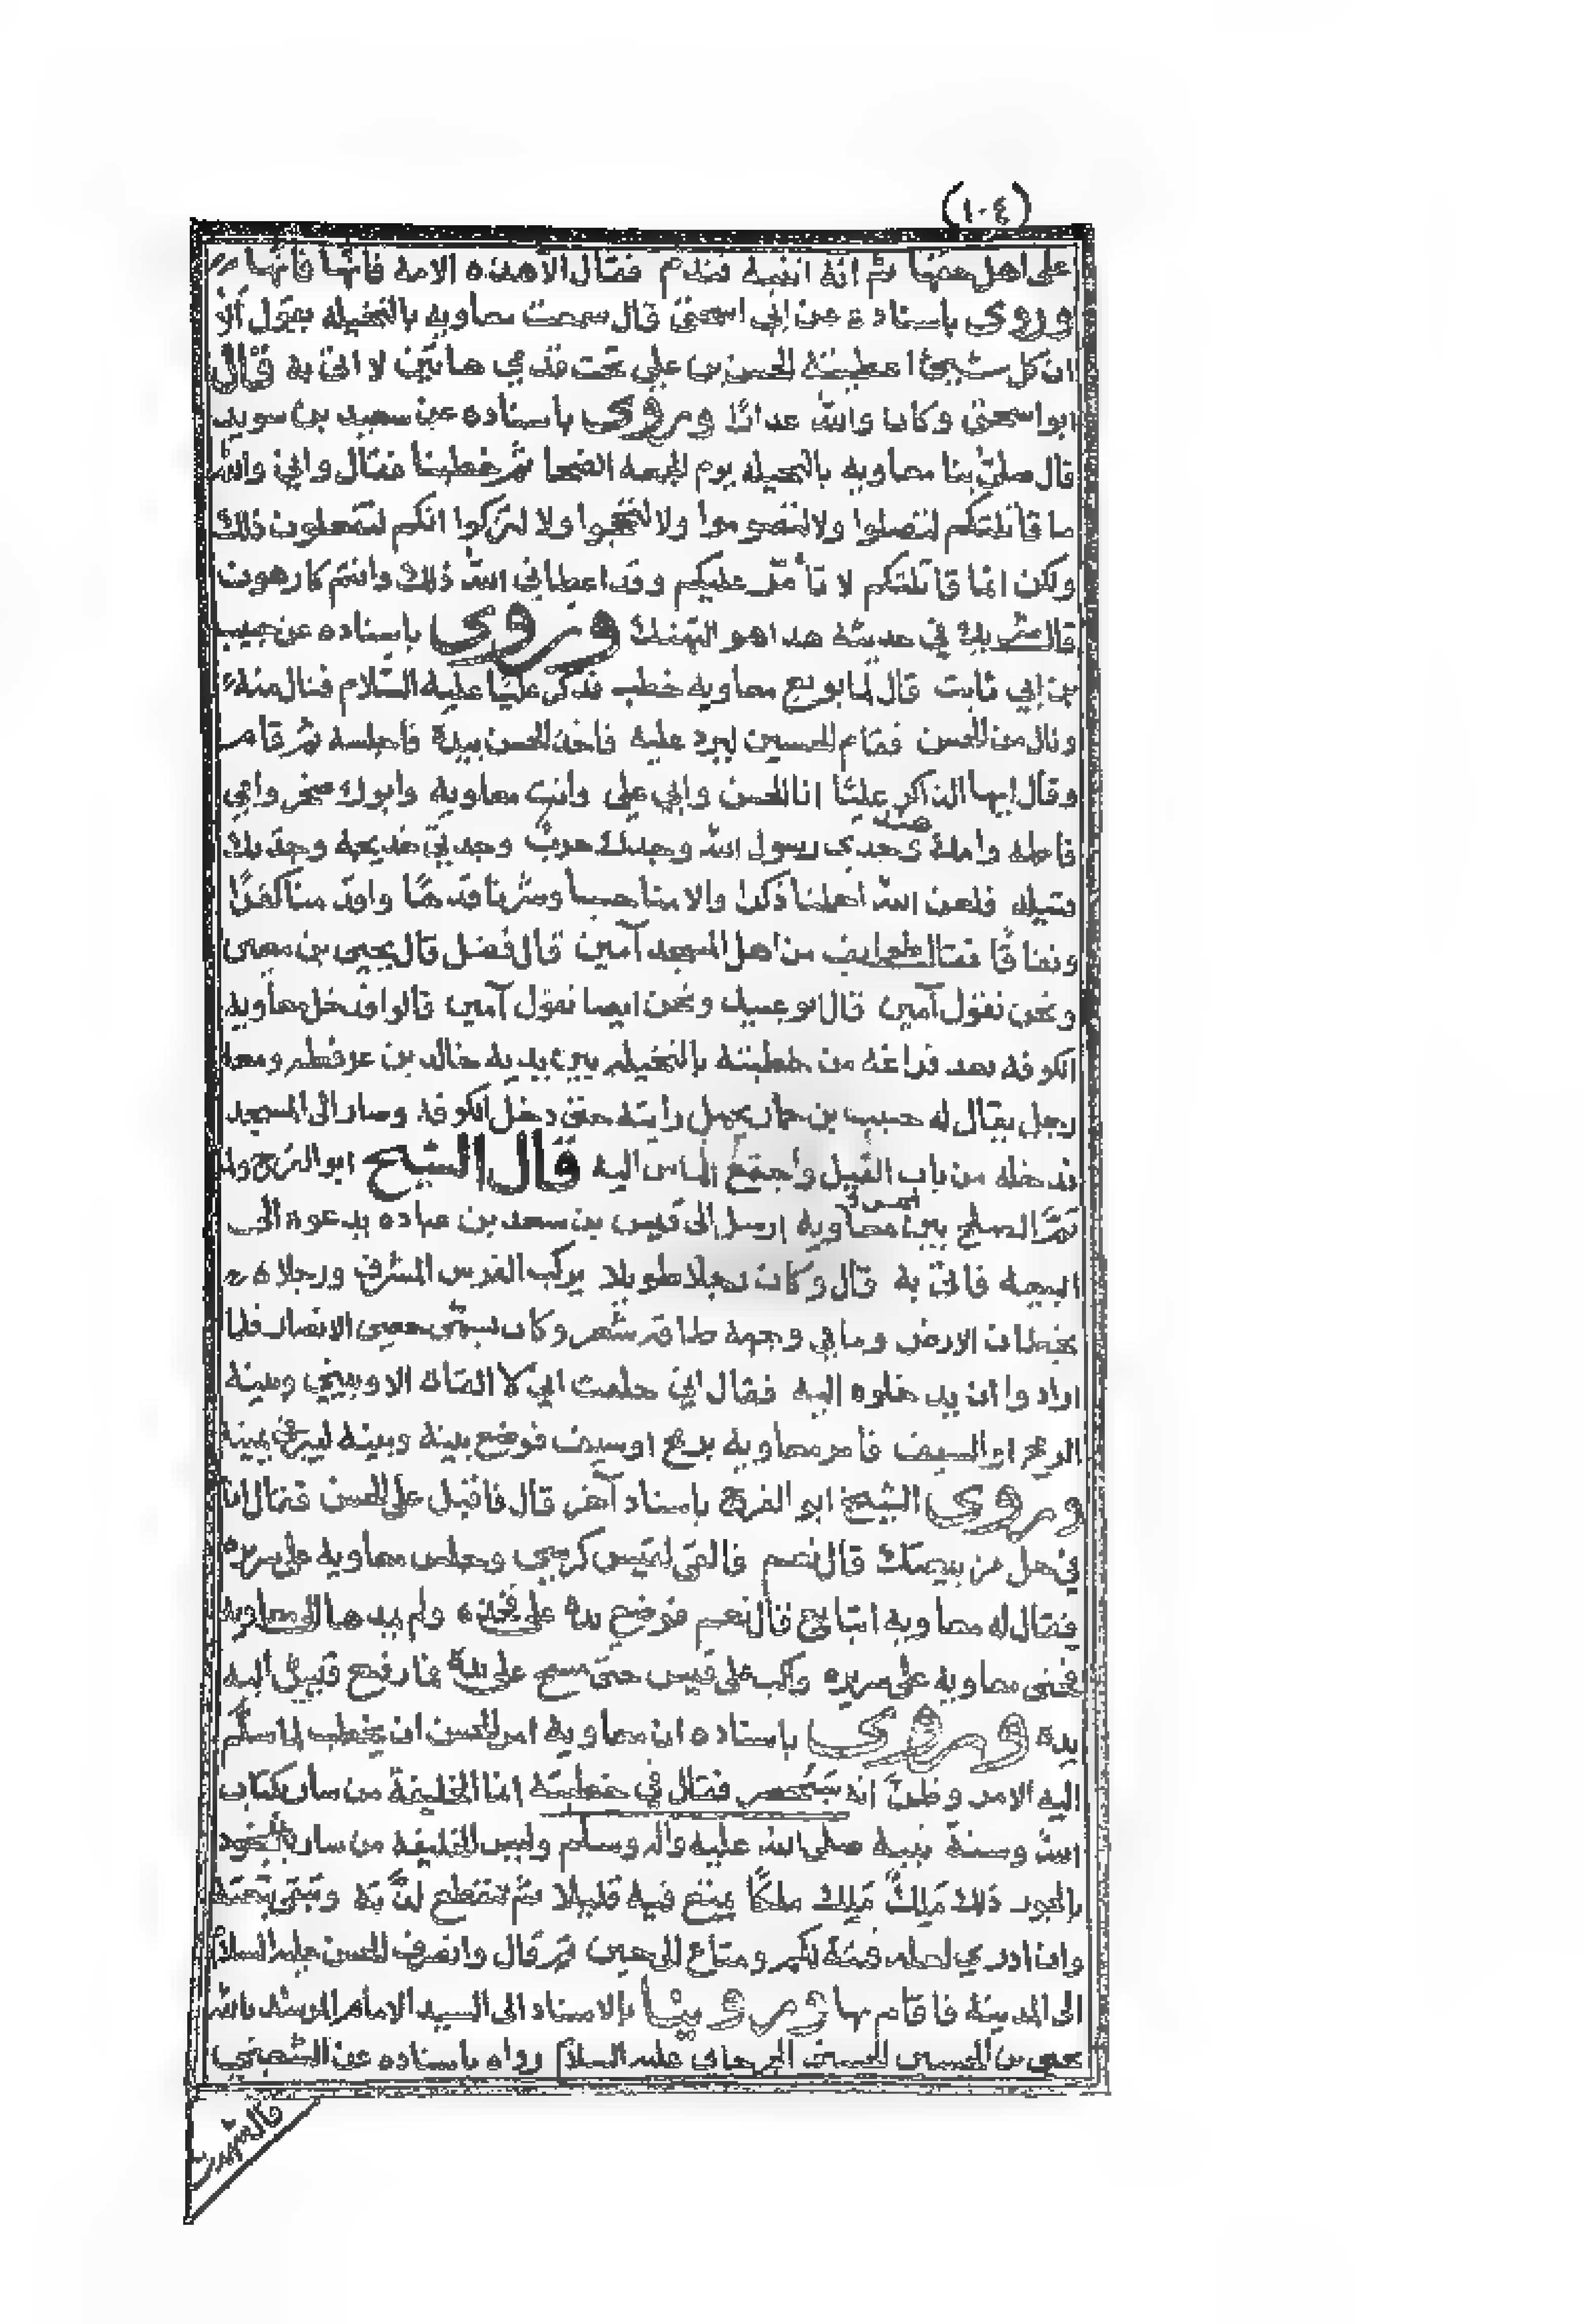 (١٠٤)
على اهل حقها ثم انه انتبه فندم فقال الا هذه الامه فانها فانها
وروى باسناده عن ابي اسحق قال سمعت معاويه بالنخيله يقول الا
ان كل شيئ اعطيته الحسن بن علي تحت قدمي هاتين لا افي به قال
ابو اسحق وكان والله غدارًا وروى باسناده عن سعيد بن سويد
قال صلى بنا معاويه بالنخيله يوم الجمعه الضحا ثم خطبنا فقال واني والله
ما قاتلتكم لتصلوا ولا لتصوموا ولا لتحجوا ولا لتزكوا انكم لتفعلون ذلك
ولكن انما قاتلتكم لا تأمر عليكم وقد اعطاني الله ذلك وانتم كارهون
قال شريك في حديثه هذا هو التهتك وروى باسناده عن حبيب
بن ابي ثابت قال لما بويع معاويه خطب فذكر عليًا عليه السلام فنال منه
ونال من الحسن فقام الحسين ليرد عليه فاخذ الحسن بيده فاجلسه ثم قام
وقال ايها الذاكر عليًا انا الحسن وابي علي وانت معاويه وابوك صخر وامي
فاطمه وامك هند وجدي رسول الله وجدك حرب وجدتي خديجه وجدتك
قتيله فلعن الله اخملنا ذكرا والامنا حسبا وشرنا قدمًا واقدمنا كفرًا
ونفاقًا فقال طوايف من اهل المسجد آمين قال فضل قال يحيى بن معين
ونحن نقول آمين قال ابو عبيد ونحن ايضا نقول آمين قالوا ودخل معاويه
الكوفه بعد فراغه من خطبته بالنخيله بين يديه خالد بن عرفطه ومعه
رجل يقال له حبيب بن حمار يحمل رايته حتى دخل الكوفه وصار الى المسجد
فدخله من باب الفيل واجتمع الناس اليه قال الشيخ ابو الفرج ولما
تم الصلح بين الحسن ومعاويه ارسل الى قيس بن سعد بن عباده يدعوه الى
البيعه فاتي به قال وكان رجلا طويلا يركب الفرس المشرف ورجلاه
تخطان الارض وما في وجهه طاقه شعر وكان يسمى خصي الانصار فلما
ارادوا ان يدخلوه اليه فقال اني حلفت اني لا القاه الا وبيني وبينه
الرمح او السيف فامر معاويه برمح او سيف فوضع بينه وبينه ليبر في يمينه
وروى الشيخ ابو الفرج باسناد آخر قال فاقبل على الحسن فقال انا
في حل من بيعتك قال نعم فالقي له قيس كرسي وجلس معاويه على سريره
فقال له معاويه اتبايع قال نعم فوضع يده على فخذه ولم يمدها الى معاويه
فجثى معاويه على سريره واكب على قيس حتى مسح على يده فما رفع قيس اليه
يده وروى باسناده ان معاويه امر الحسن ان يخطب لما سلم
اليه الامر وظن انه سيحصر فقال في خطبته انما الخليفة من سار بكتاب
الله وسنة نبيه صلى الله عليه واله وسلم وليس الخليفه من سار بالجور
بالجور ذلك مَلِكٌ مَلَكَ ملكًا يمتع فيه قليلا ثم تنقطع لذته وتبقى تبعته
وان ادري لعله فتنه لكم ومتاع الى حين ثم قال وانصرف الحسن عليه السلام
الى المدينه فاقام بها وروينا بالاسناد الى السيد الامام المرشد بالله
يحيى بن الحسين الحسني الجرجاني عليه السلام رواه باسناده عن الشعبي
قال شهدت